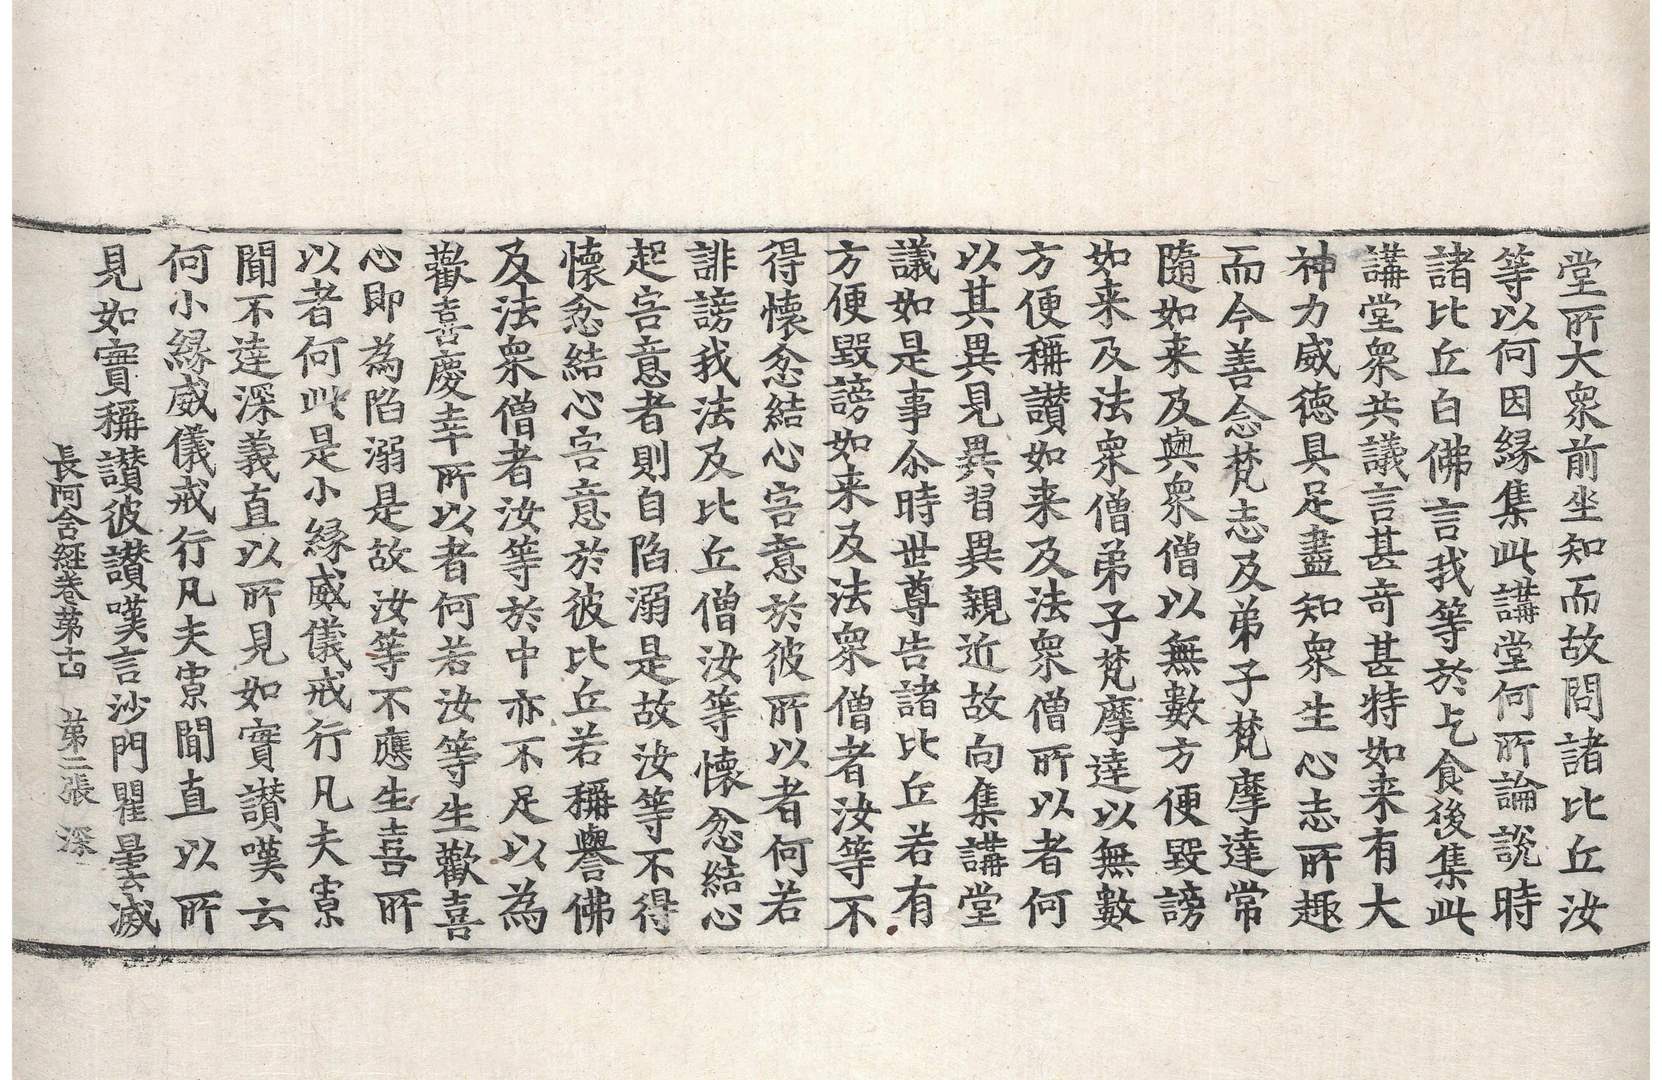 堂所大衆前坐知而故問諸比丘汝
等以何因縁集此講堂何所論說時
諸比丘白佛言我等於乞食後集此
講堂衆共議言甚奇甚特如来有大
神力威徳具足盡知衆生心志所趣
而今善念梵志及弟子梵摩達常
隨如来及與衆僧以無數方便毀謗
如来及法衆僧弟子梵摩達以無數
方便稱讃如来及法衆僧所以者何
以其異見異習異親近故向集講堂
議如是事尒時世尊告諸比丘若有
方便毀謗如来及法衆僧者汝等不
得懷忿結心害意於彼所以者何若
誹謗我法及比丘僧汝等懷忿結心
起害意者則自陷溺是故汝等不得
懷忿結心害意於彼比丘若稱譽佛
及法衆僧者汝等於中亦不足以為
歡喜慶幸所以者何若汝等生歡喜
心即為陷溺是故汝等不應生喜所
以者何此是小縁威儀戒行凡夫寡
聞不達深義直以所見如實讃嘆云
何小縁威儀戒行凡夫寡聞直以所
見如實稱讃彼讃嘆言沙門瞿曇滅
長阿含經卷第十四 第二張 深